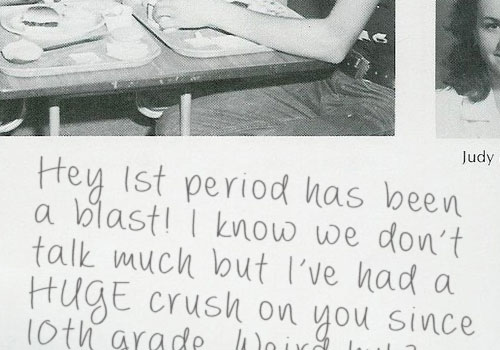 Judy
Hey 1st period has been
a blast! I know we don't
talk much but I've had a
HUGE crush on you since
10th grade. Weird huh?